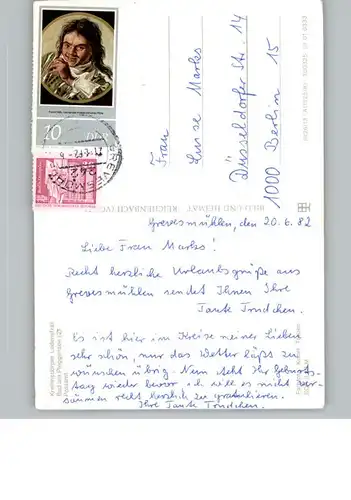 20 DDR
GREVESMÜHLEN
Frau
Luise Marks
Düsseldorfer Str. 14
1000 Berlin 15
BILD UND HEIMAT REICHENBACH (VOGTL)
Grevesmühlen, den 20.6.82
Liebe Frau Marks!
Recht herzliche Urlaubsgrüße aus
Grevesmühlen sendet Ihnen Ihre
Tante Trudchen.
Es ist hier im Kreise meiner Lieben
sehr schön, nur das Wetter läßt zu
wünschen übrig. Nun steht Ihr Geburts-
tag wieder bevor ich will es nicht ver-
säumen recht herzlich zu gratulieren.
Ihre Tante Trudchen.